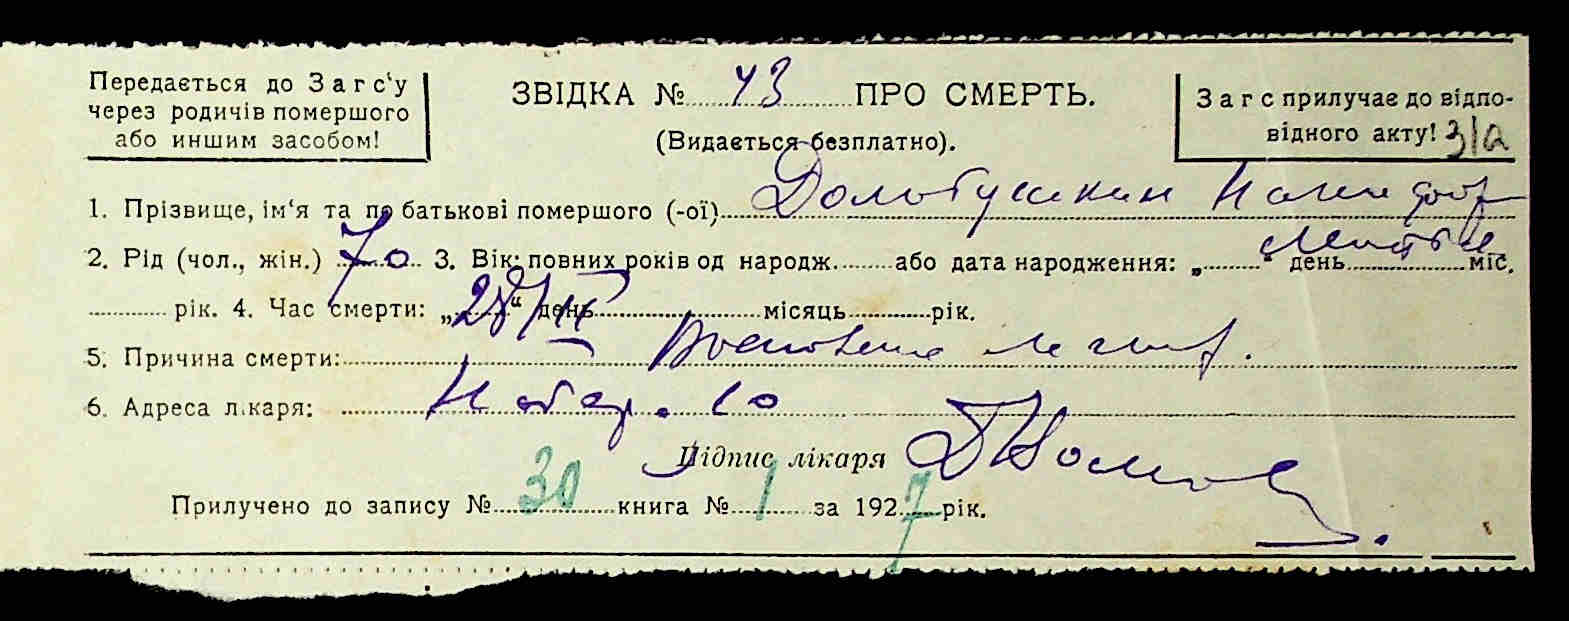 Передається до Загс‘у
через родичів помершого
або иншим засобом!
ЗВІДКА № 43 ПРО СМЕРТЬ.
(Видається безплатно).
Загс прилучає до відпо-
відного акту! 31а
1. Прізвище, ім‘я та по батькові помершого (-ої)
2. Рід (чол., жін.) 70 3. Вік: повних років од народж. ........ або дата народження: „........“ день ................ міс.
............ рік. 4. Час смерти: „28/IX“ день ................ місяць ............ рік.
5. Причина смерти: Воспаление легких.
6. Адреса лікаря: Набер. 10
Підпис лікаря
Прилучено до запису № 30 книга № 1 за 1927 рік.